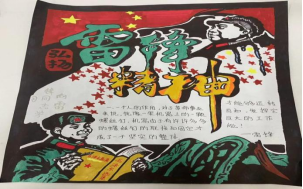 弘扬
雷锋
精神
一个人的作用，对于革命事业
来说，就像一架机器上的一颗
螺丝钉。机器由于有许许多多
的螺丝钉的联接和固定，才
成了一个坚实的整体，
才能够运转
自如，
雷锋